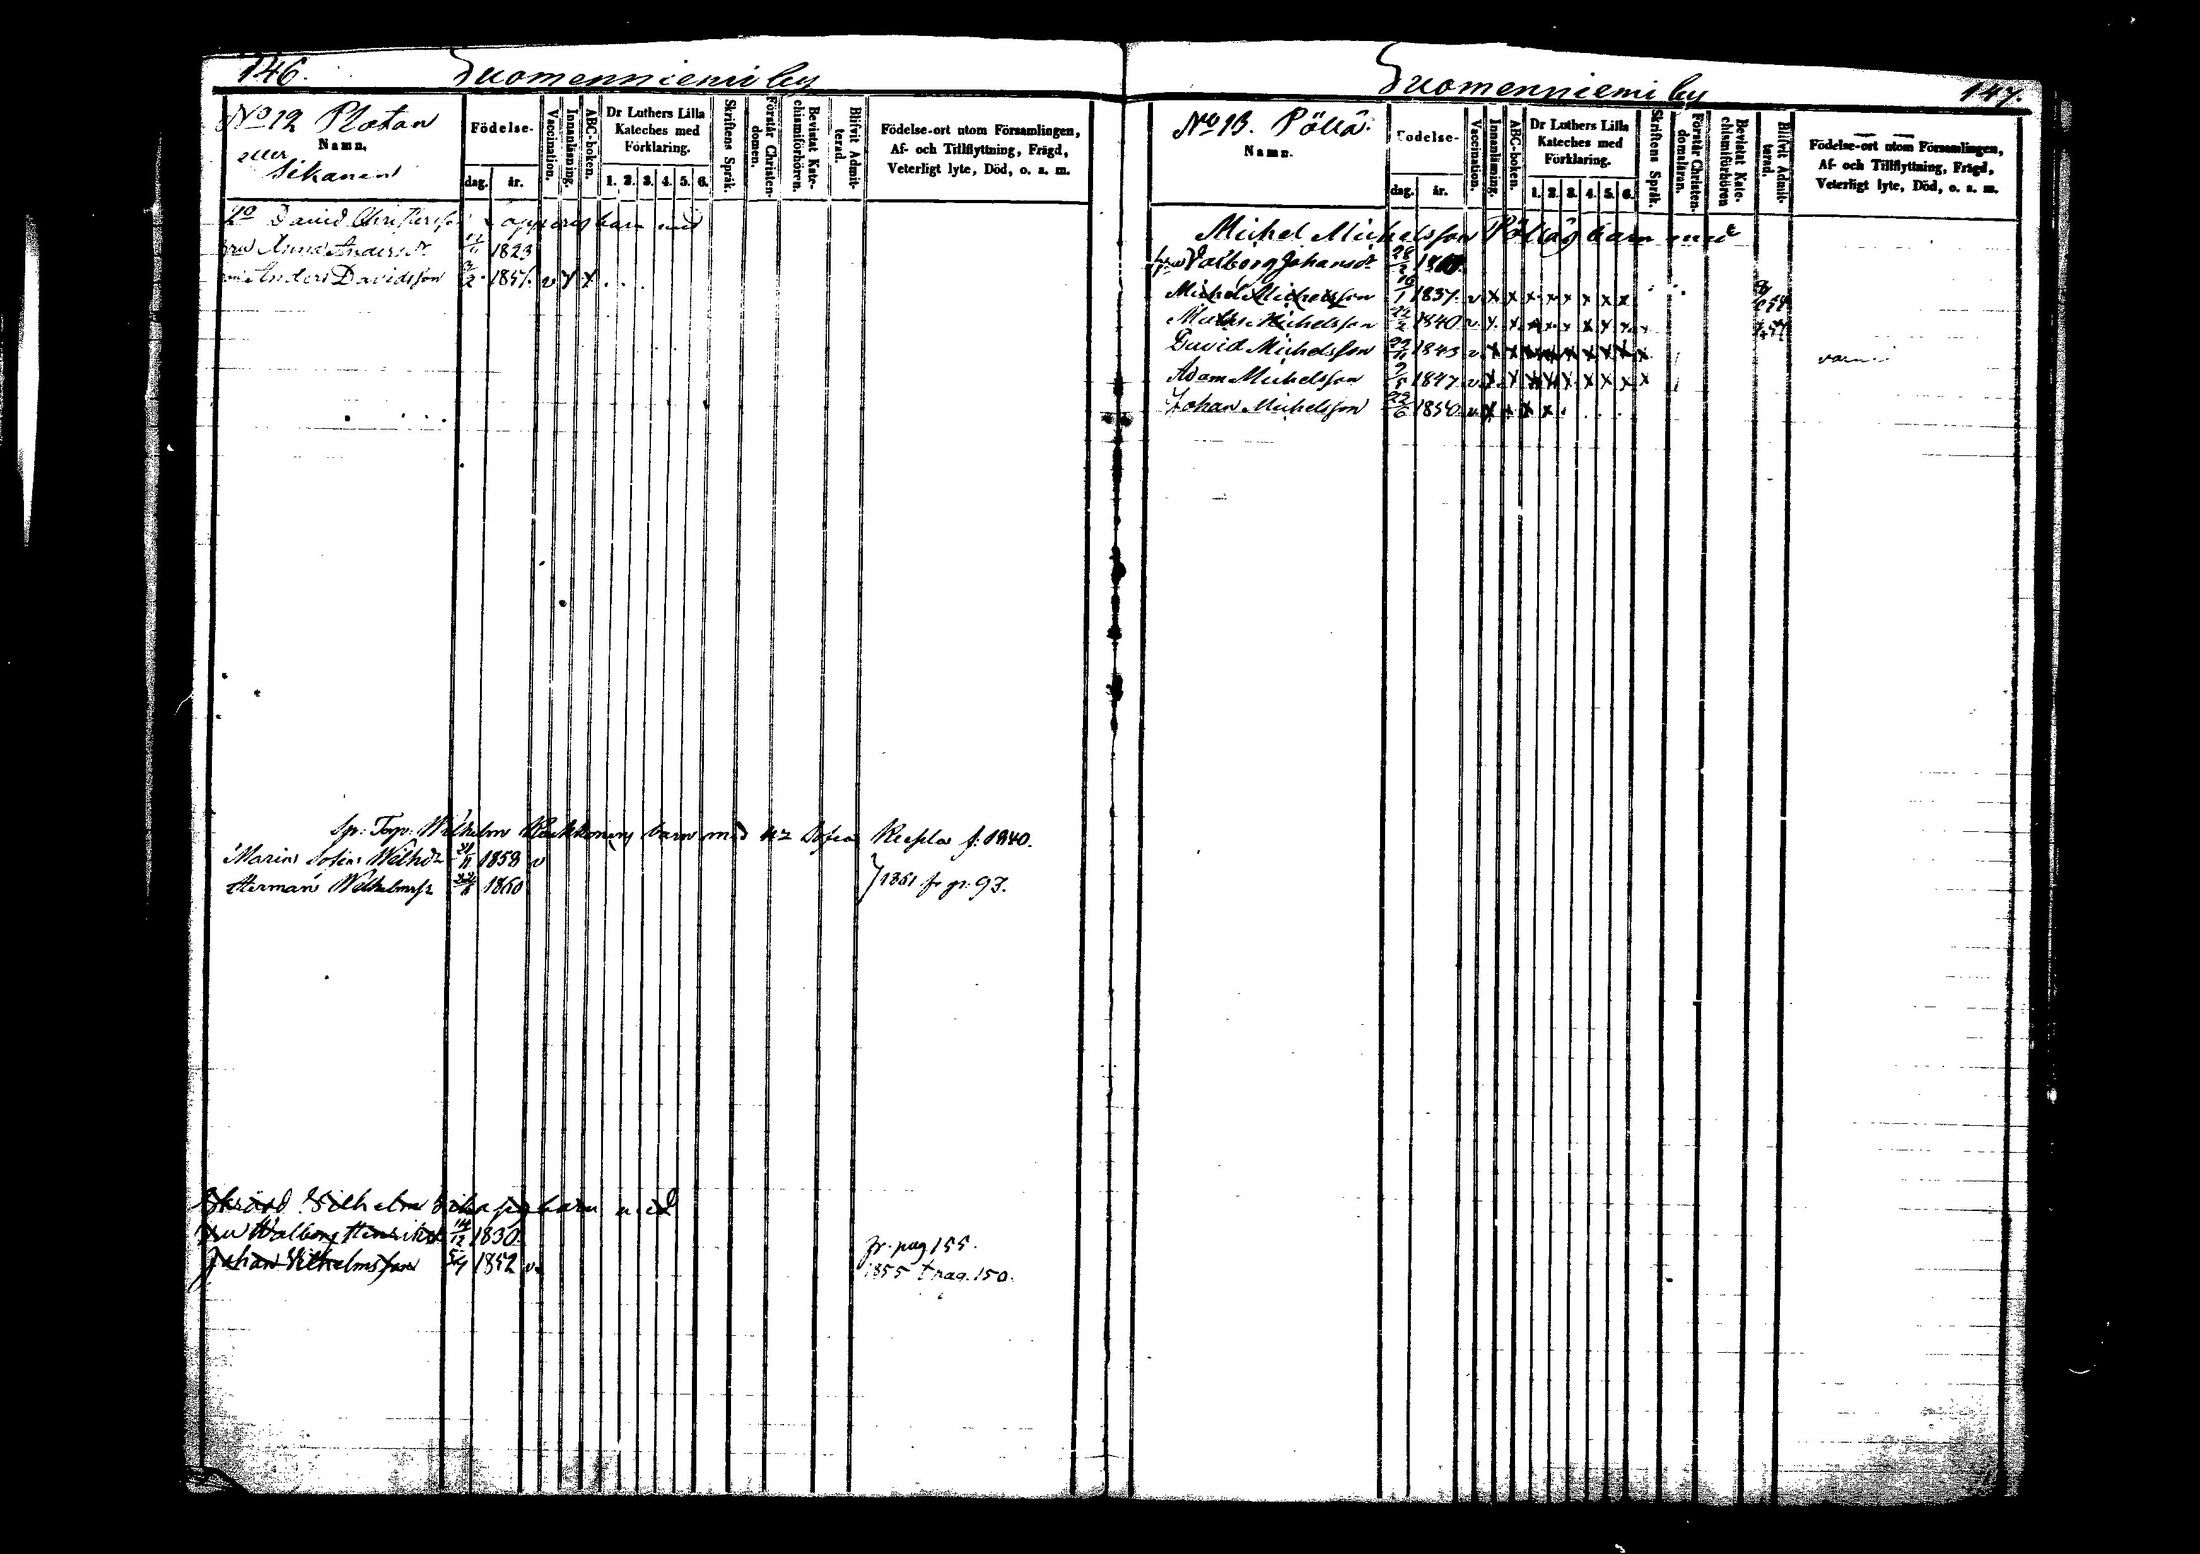 146.
Suomenniemi by
No 12 Platan
Namn.
eller
Sikanen
Födelse-
dag. år.
Vaccination.
Innanläsning.
ABC-boken.
Dr Luthers Lilla
Kateches med
Förklaring.
1. 2. 3. 4. 5. 6.
Skriftens Språk.
Förstår Christen-
domen.
Bevistat Kate-
chismiförhören.
Blifvit Admit-
terad.
Födelse-ort utom Församlingen,
Af- och Tillflyttning, Frägd,
Veterligt lyte, Död, o. s. m.
David barn med
Anna 1823
Anders Davidsson 1851. v x x
Sp: Torp: Wilhelm barn med Sofia f: 1840.
Maria Sofia Wilhdr 1858 v
Herman Wilhelmss 1860
1861 fr pag: 93.
Wilhelm barn med
Walborg 14/12 1830.
fr. pag 155.
Johan Vilhelmsson 5/4 1852 v.
1855 t pag. 150.
Suomenniemi by
147.
No 13. Pöllä.
Namn.
Födelse-
dag. år.
Vaccination.
Innanläsning.
ABC-boken.
Dr Luthers Lilla
Kateches med
Förklaring.
1. 2. 3. 4. 5. 6.
Skriftens Språk.
Förstår Christen-
domsläran.
Bevistat Kate-
chismiförhören
Blifvit Admit-
terad.
Födelse-ort utom Församlingen,
Af- och Tillflyttning, Frägd,
Veterligt lyte, Död, o. s. m.
Michel Michelsson Pölläs barn med
Valborg Johansdr 28/2
Michel Michelsson 1837. v x x x x x x x x
Mats Michelsson 1840 v x x x x x x x x
David Michelsson 1843 v x x x x x x x x x
Adam Michelsson 9/5 1847 v x x x x x x x x x
Johan Michelsson 23/6 1850 v x x x x